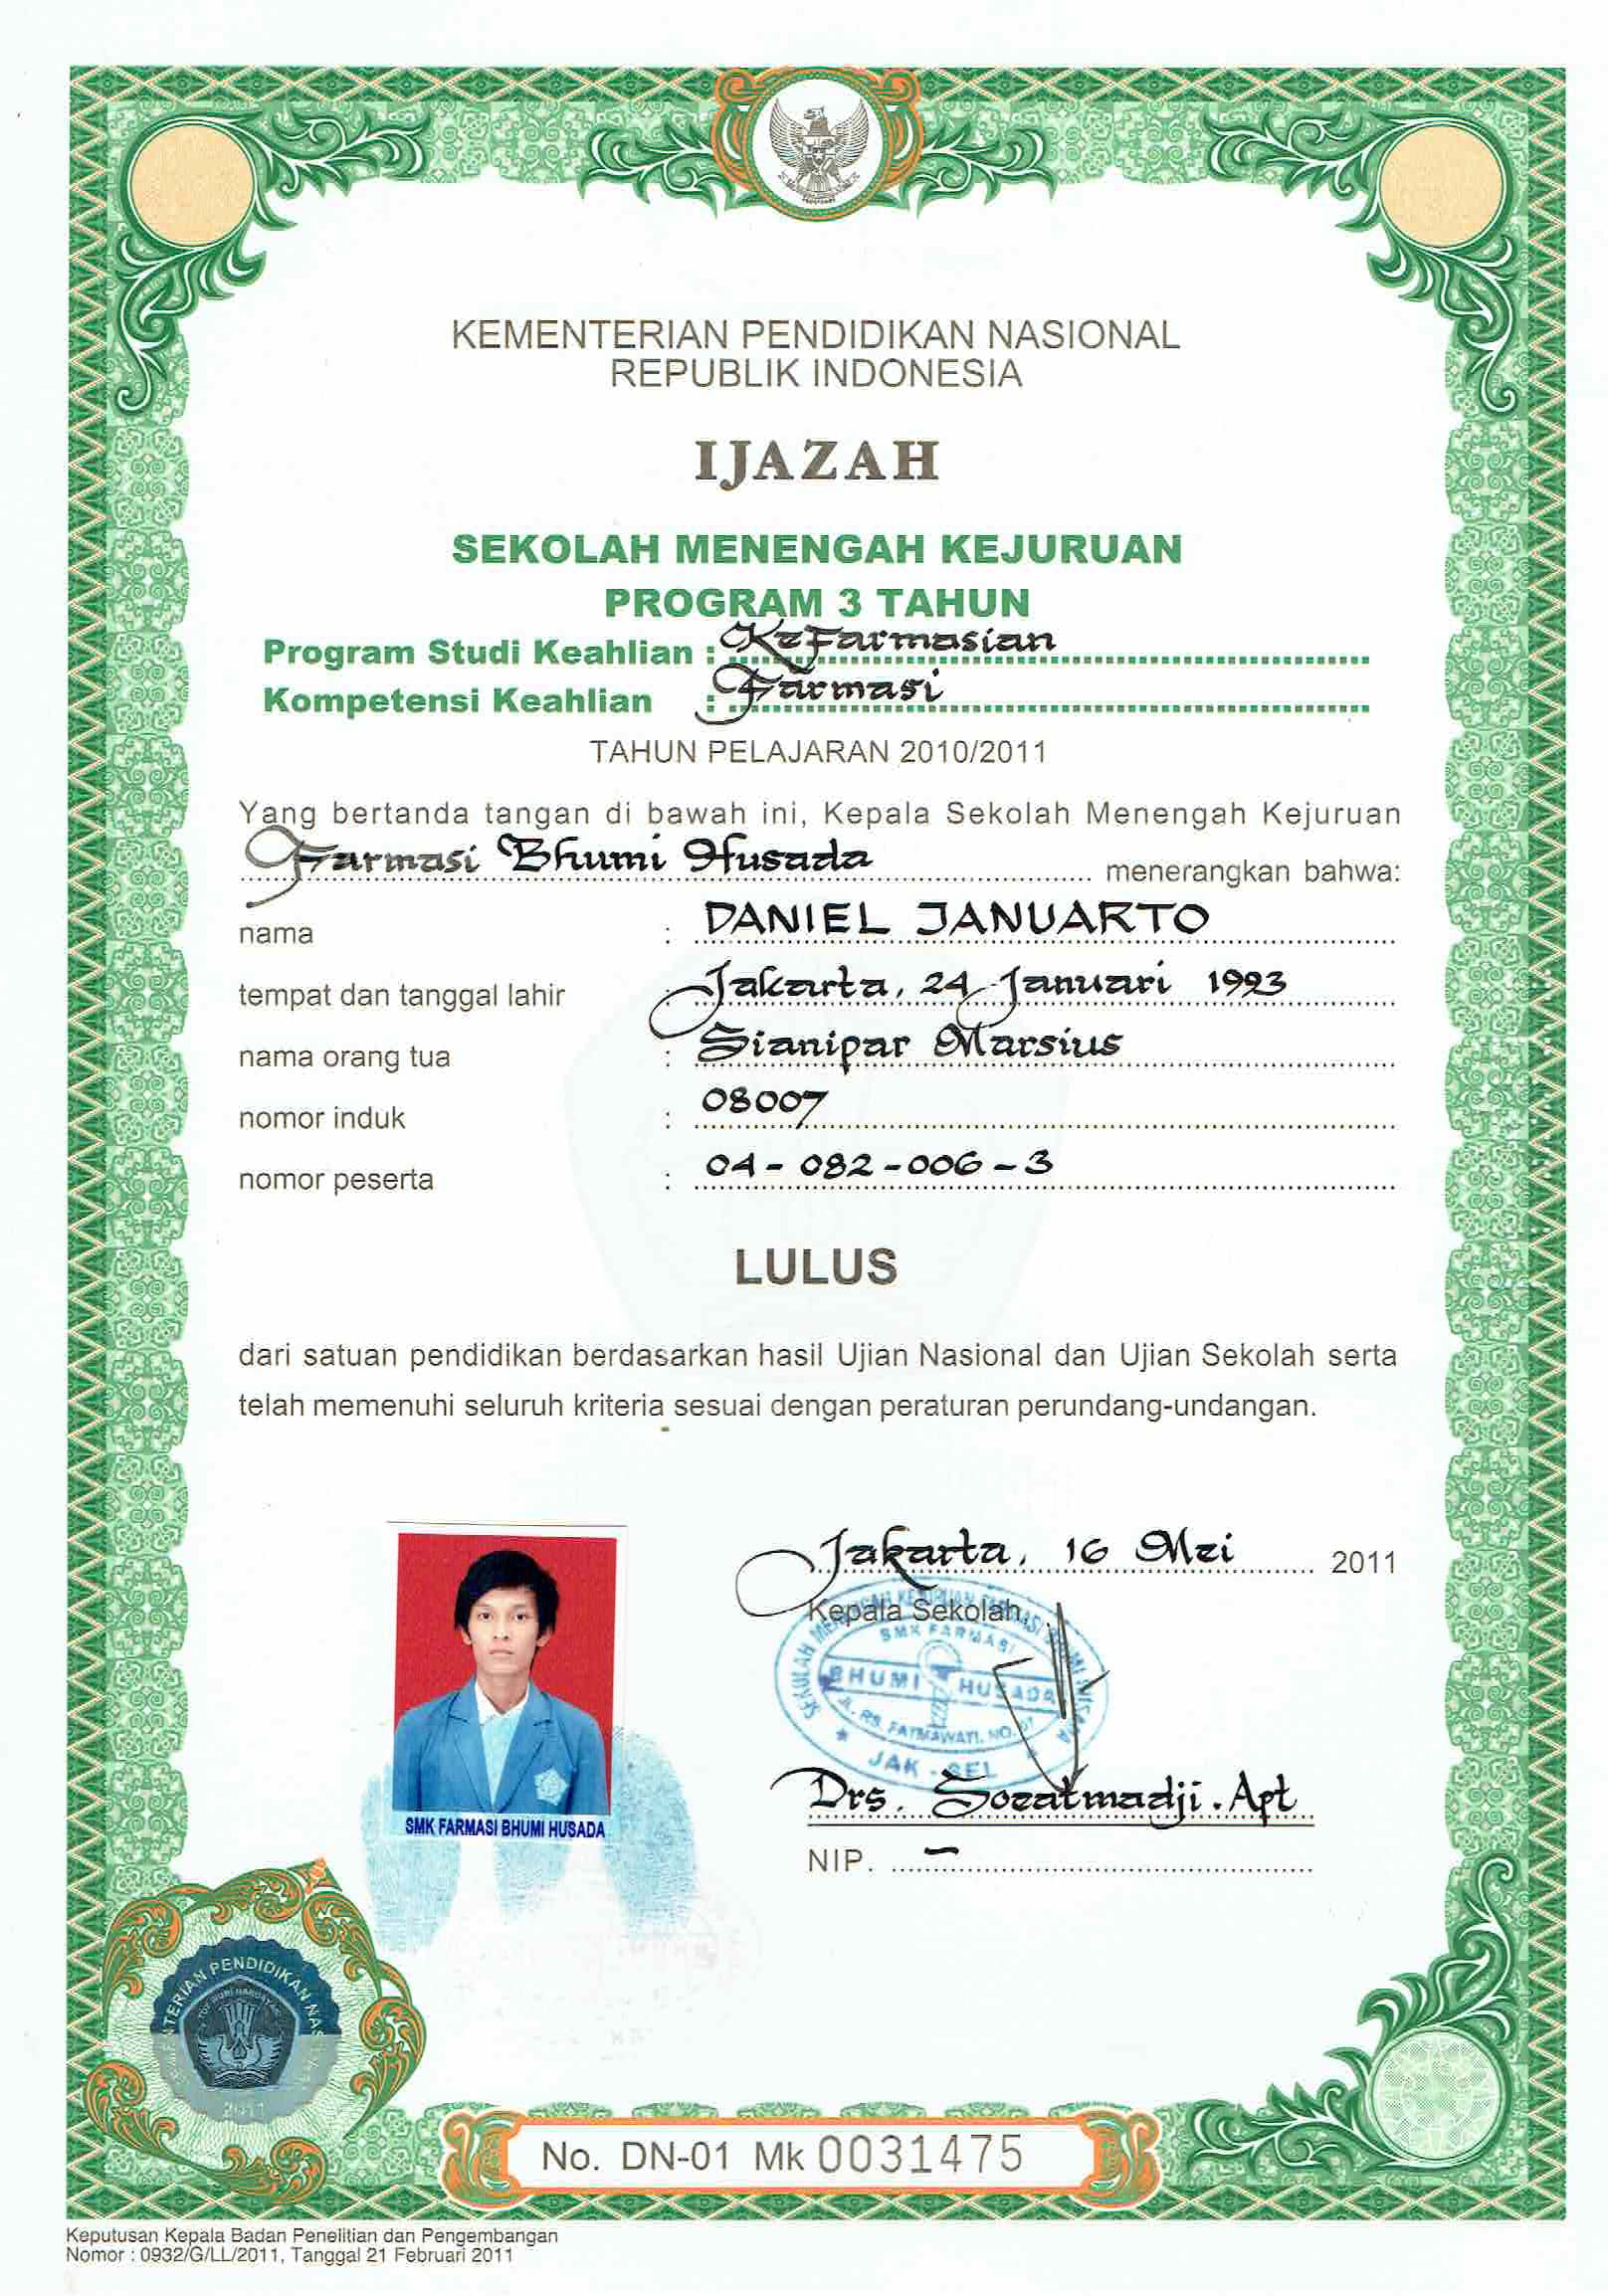 KEMENTERIAN PENDIDIKAN NASIONAL
REPUBLIK INDONESIA
IJAZAH
SEKOLAH MENENGAH KEJURUAN
PROGRAM 3 TAHUN
Program Studi Keahlian : KeFarmasian
Kompetensi Keahlian : Farmasi
TAHUN PELAJARAN 2010/2011
Yang bertanda tangan di bawah ini, Kepala Sekolah Menengah Kejuruan
Farmasi Bhumi Husada menerangkan bahwa:
nama : DANIEL JANUARTO
tempat dan tanggal lahir : Jakarta, 24 Januari 1993
nama orang tua : Sianipar Marsius
nomor induk : 08007
nomor peserta : 04-082-006-3
LULUS
dari satuan pendidikan berdasarkan hasil Ujian Nasional dan Ujian Sekolah serta
telah memenuhi seluruh kriteria sesuai dengan peraturan perundang-undangan.
Jakarta, 16 Mei 2011
Kepala Sekolah,
SEKOLAH MENENGAH KEJURUAN FARMASI BHUMI HUSADA
SMK FARMASI
BHUMI HUSADA
JL. RS. FATMAWATI, NO.
JAK - SEL
Drs. Soeatmadji. Apt
NIP. -
SMK FARMASI BHUMI HUSADA
KEMENTERIAN PENDIDIKAN NAS
TUT WURI HANDAYANI
2011
No. DN-01 Mk 0031475
Keputusan Kepala Badan Penelitian dan Pengembangan
Nomor : 0932/G/LL/2011, Tanggal 21 Februari 2011